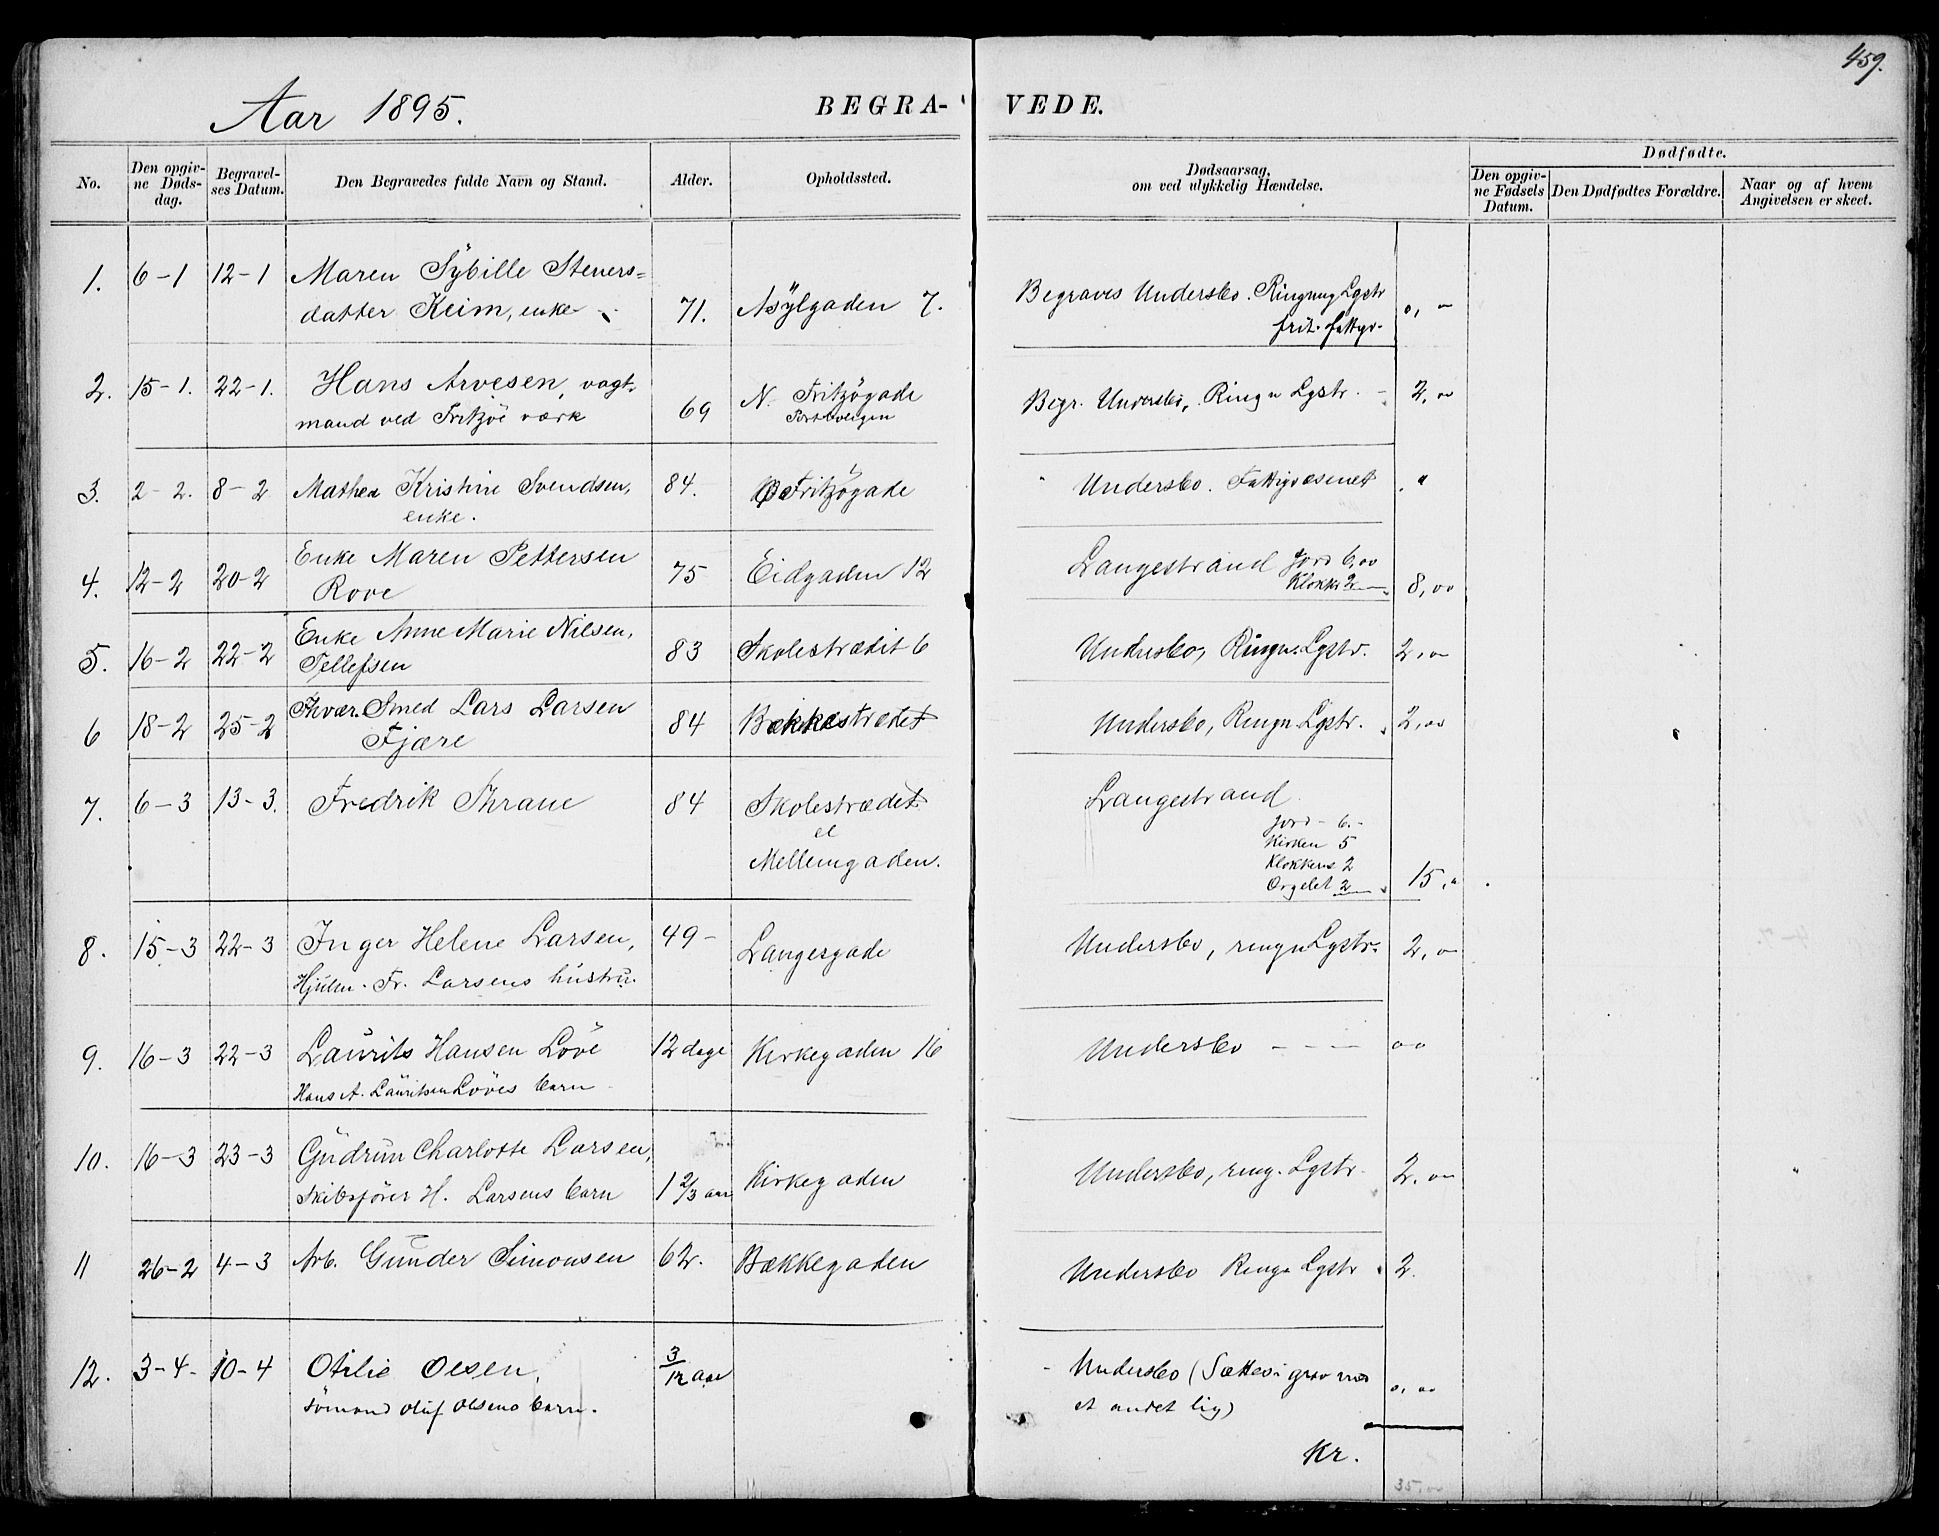 459.
Aar 1895.
BEGRA- VEDE.
No.
Den opgiv-
ne Døds-
dag.
Begravel-
ses Datum.
Den Begravedes fulde Navn og Stand.
Alder.
Opholdssted.
Dødsaarsag,
om ved ulykkelig Hændelse.
Dødfødte.
Den opgiv-
ne Fødsels
Datum.
Den Dødfødtes Forældre.
Naar og af hvem
Angivelsen er skeet.
1. 6-1 12-1 Maren Sybille Steners=
datter Keim, enke 71. Asylgaden 7. Begraves Undersbo. Ringning Lgstr
frit. fattgv. 0,
2. 15-1. 22-1. Hans Arvesen, vagt-
mand ved Fritzöe værk 69 N. Fritzögade
Portboligen Begr. Undersbo, Ringn Lgstr. 2,00
3. 2-2. 8-2 Mathea Kristine Svendsen,
enke. 84. Fritzögade Undersbo. Fattigvæsenet
4. 12-2 20-2 Enke Maren Pettersen
Rove 75 Eidgaden 12 Langestrand Jord 6,00
Klokke 2 8,00
5. 16-2 22-2 Enke Anne Marie Nilsen,
Tellefsen 83 Skolestrædet 6 Undersbo, Ringn. Lgstr. 2,00
6 18-2 25-2 Fhvær. Smed Lars Larsen
Fjære 84 Bækkestrædet Undersbo, Ringn. Lgstr. 2,00
7. 6-3 13-3. Fredrik Thrane 84 Skolestrædet
el
Mellemgaden. Langestrand
Jord - 6.-
Kirken 5
Klokkens 2
Orgelet 2 15,
8. 15-3 22-3 Inger Helene Larsen,
Hjulm. Fr. Larsens hustru. 49- Langesgade Undersbo, ringn Lgstr. 2,00
9. 16-3 22-3 Laurits Hansen Löve
Hans A. Lauritsen Löves barn 12 dage Kirkegaden 16 Undersbo - - - 00
10. 16-3 23-3 Gudrun Charlotte Larsen,
Skibsförer H. Larsens barn 1 2/3 aar Kirkegaden Undersbo, ring. Lgstr. 2,00
11 26-2 4-3 Arb. Gunder Simonsen 62. Bækkegaden Undersbo Ringn Lgstr 2.
12. 3-4. 10-4 Otilie Olsen,
sömand Oluf Olsens barn. 3/12 aar Undersbo (Sættes i grav med
et andet lig) 0,00
Kr.
35,00